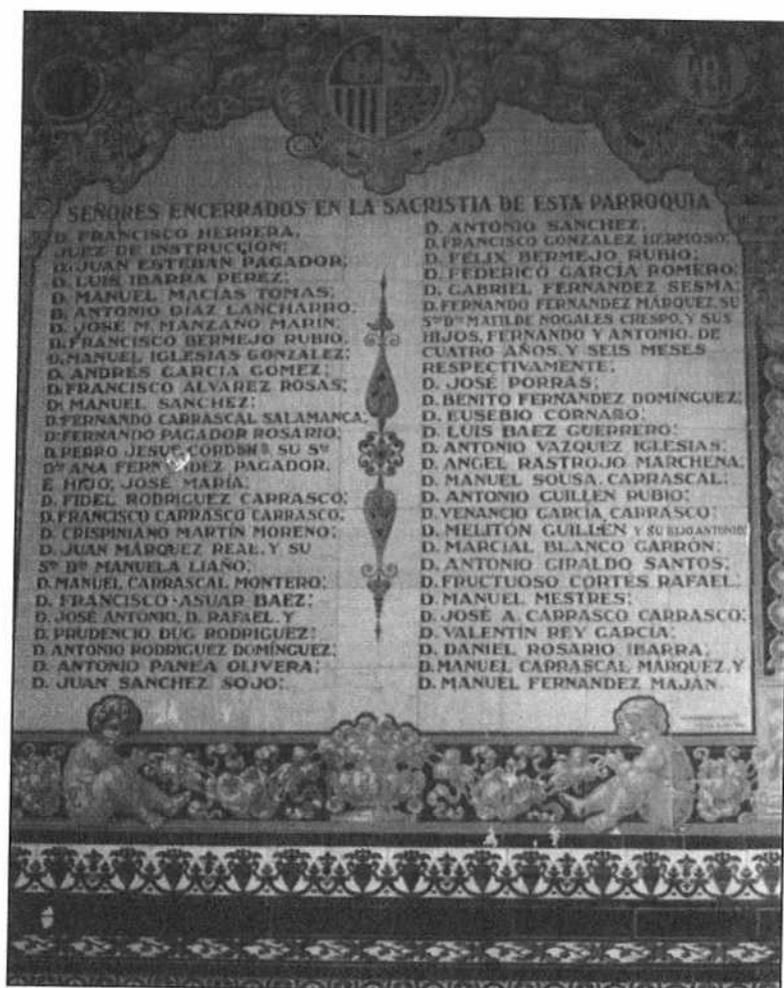 SEÑORES ENCERRADOS EN LA SACRISTIA DE ESTA PARROQUIA
D. FRANCISCO HERRERA,
JUEZ DE INSTRUCCION;
D. JUAN ESTEBAN PAGADOR;
D. LUIS IBARRA PEREZ;
D. MANUEL MACÍAS TOMAS;
D. ANTONIO DÍAZ LANCHARRO;
D. JOSÉ M. MANZANO MARIN;
D. FRANCISCO BERMEJO RUBIO;
D. MANUEL IGLESIAS GONZALEZ;
D. ANDRES GARCIA GOMEZ;
D. FRANCISCO ALVAREZ ROSAS;
D. MANUEL SANCHEZ;
D. FERNANDO CARRASCAL SALAMANCA;
D. FERNANDO PAGADOR ROSARIO;
D. PEDRO JESUS SU Sra
Dña ANA PAGADOR,
E HIJO, JOSÉ MARÍA;
D. FIDEL RODRIGUEZ CARRASCO;
D. FRANCISCO CARRASCO CARRASCO;
D. CRISPINIANO MARTÍN MORENO;
D. JUAN MÁRQUEZ REAL, Y SU
Sra Dña MANUELA LIAÑO;
D. MANUEL CARRASCAL MONTERO;
D. FRANCISCO ASUAR BAEZ;
D. JOSÉ ANTONIO, D. RAFAEL, Y
D. PRUDENCIO DUG RODRIGUEZ;
D. ANTONIO RODRIGUEZ DOMÍNGUEZ;
D. ANTONIO PANEA OLIVERA;
D. JUAN SANCHEZ SOJO;
D. ANTONIO SANCHEZ;
D. FRANCISCO GONZALEZ HERMOSO;
D. FÉLIX BERMEJO RUBIO;
D. FEDERICO GARCÍA ROMERO;
D. GABRIEL FERNÁNDEZ SESMA;
D. FERNANDO FERNANDEZ MÁRQUEZ, SU
Sra Dña MATILDE NOGALES CRESPO, Y SUS
HIJOS, FERNANDO Y ANTONIO, DE
CUATRO AÑOS, Y SEIS MESES
RESPECTIVAMENTE;
D. JOSÉ PORRAS;
D. BENITO FERNANDEZ DOMÍNGUEZ;
D. EUSEBIO CORNARO;
D. LUIS BAEZ GUERRERO;
D. ANTONIO VAZQUEZ IGLESIAS;
D. ANGEL RASTROJO MARCHENA;
D. MANUEL SOUSA CARRASCAL;
D. ANTONIO GUILLEN RUBIO;
D. VENANCIO GARCÍA CARRASCO;
D. MELITÓN GUILLÉN Y SU HIJO ANTONIO;
D. MARCIAL BLANCO GARRÓN;
D. ANTONIO GIRALDO SANTOS;
D. FRUCTUOSO CORTÉS RAFAEL;
D. MANUEL MESTRES;
D. JOSÉ A. CARRASCO CARRASCO;
D. VALENTÍN REY GARCÍA;
D. DANIEL ROSARIO IBARRA;
D. MANUEL CARRASCAL MÁRQUEZ, Y
D. MANUEL FERNANDEZ MAJÁN.